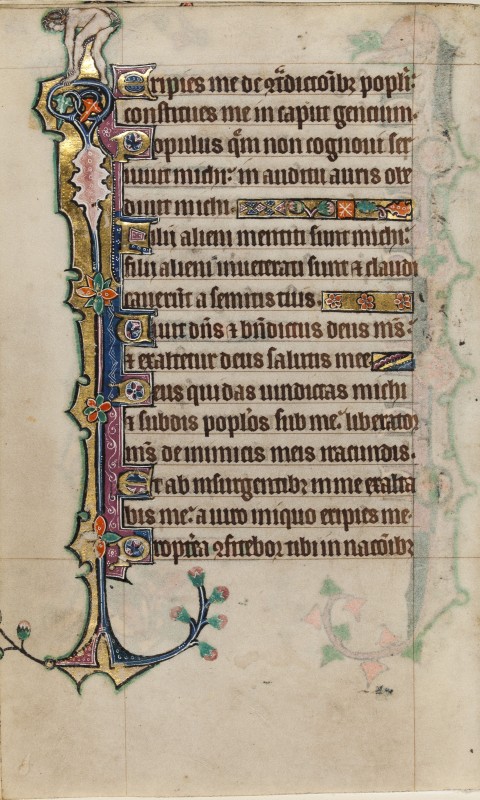 Eripies me de ꝯtdictoībꝫ popli:
constitues me in caput gencium.
Populus qm̄ non cognouit ser
uiuit michi: in auditu auris obe
diuit michi.
Filij alieni mentiti sunt michi:
filij alieni inueterati sunt ⁊ claudi
cauerūt a semitis tuis.
Uiuit dn̄s ⁊ bn̄dictus deus ms̄:
⁊ exaltetur deus salutis mee
Deus qui das uindictas michi
⁊ subdis poplōs sub me: liberator
ms̄ de inimicis meis iracundis.
Et ab insurgentibꝫ in me exalta
bis me: a uiro iniquo eripies me.
Propt̄ea ꝯfitebor tibi in nacōībꝫ